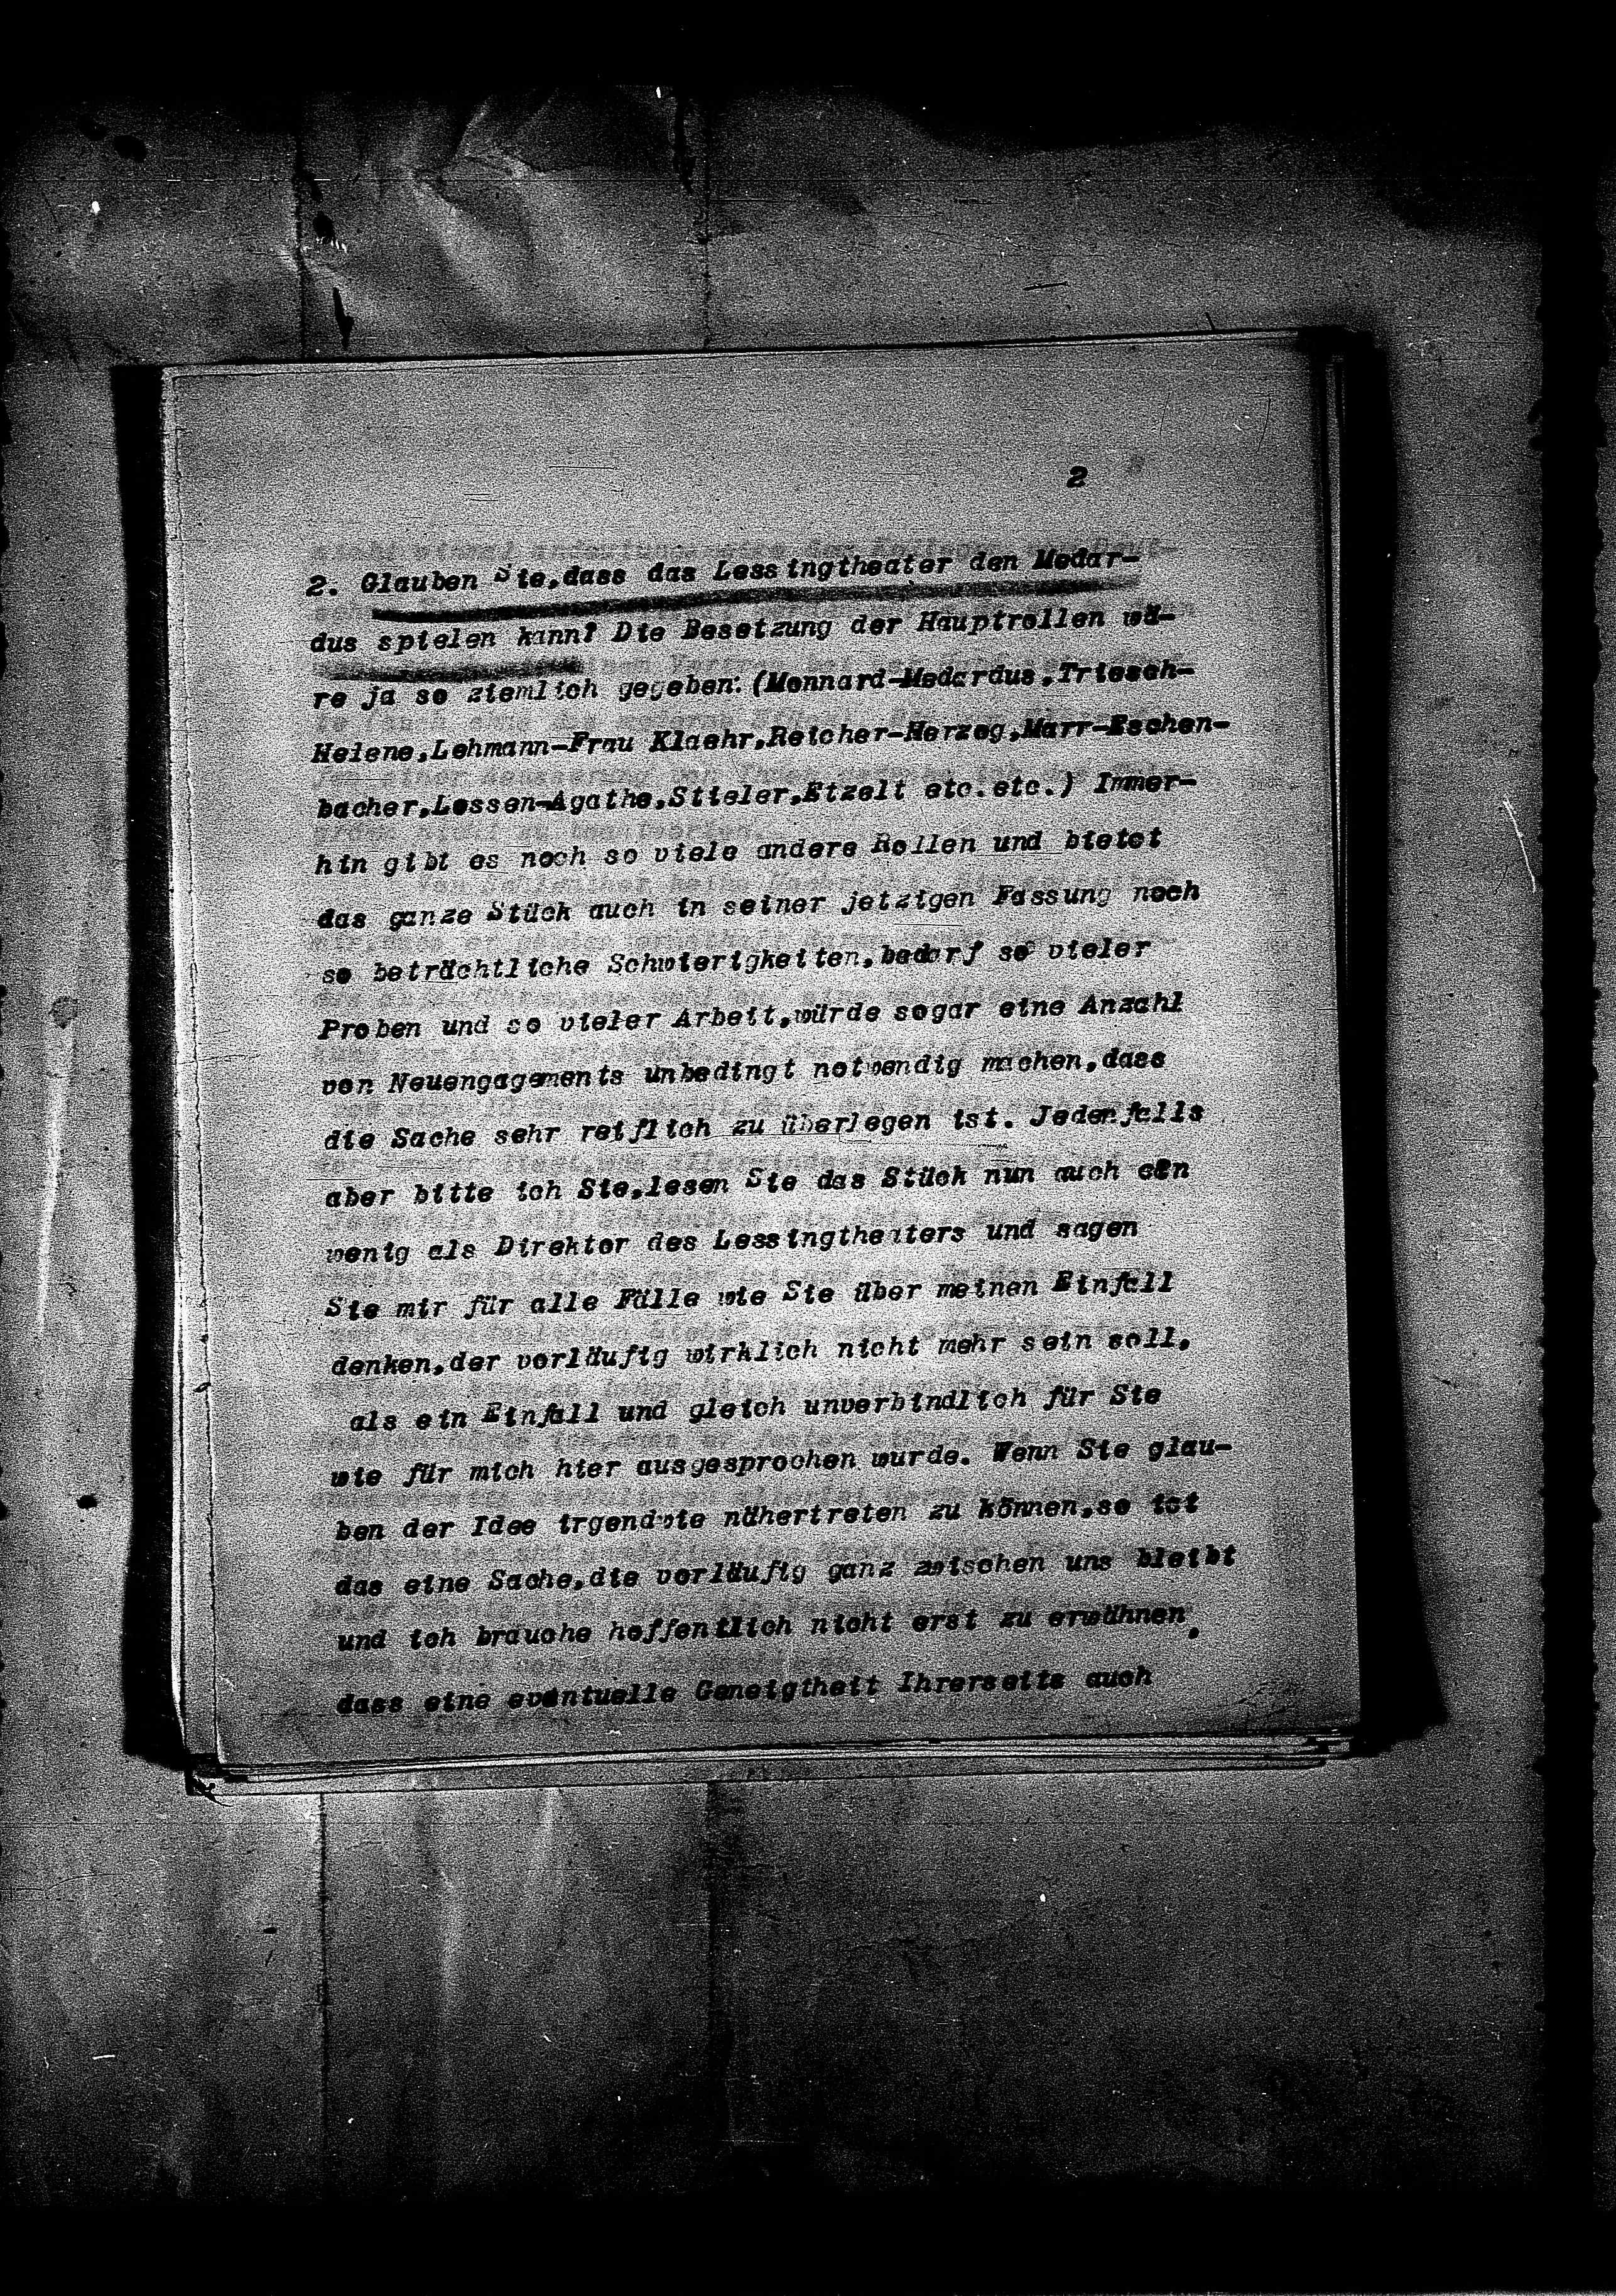 2
2. Glauben Sie,dass das Lessingtheater den Medar-
dus spielen kann? Die Besetzung der Hauptrollen wä-
re ja so ziemlich gegeben: (Monnard-Medardus,Triesch-
Helene,Lehmann-Frau Klaehr,Reicher-Herzog,Marr-Eschen-
bacher,Lossen-Agathe,Stieler,Etzelt etc.etc.) Immer-
hin gibt es noch so viele andere Rollen und bietet
das ganze Stück auch in seiner jetzigen Fassung noch
so beträchtliche Schwierigkeiten,bedarf so vieler
Proben und so vieler Arbeit,würde sogar eine Anzahl
von Neuengagements unbedingt notwendig machen,dass
die Sache sehr reiflich zu überlegen ist. Jedenfalls
aber bitte ich Sie,lesen Sie das Stück nun auch ein
wenig als Direktor des Lessingtheaters und sagen
Sie mir für alle Fälle wie Sie über meinen Einfall
denken,der vorläufig wirklich nicht mehr sein soll,
als ein Einfall und gleich unverbindlich für Sie
wie für mich hier ausgesprochen wurde. Wenn Sie glau-
ben der Idee irgendwie nähertreten zu können,so ist
das eine Sache,die vorläufig ganz zwischen uns bleibt
und ich brauche hoffentlich nicht erst zu erwähnen,
dass eine eventuelle Geneigtheit Ihrerseits auch